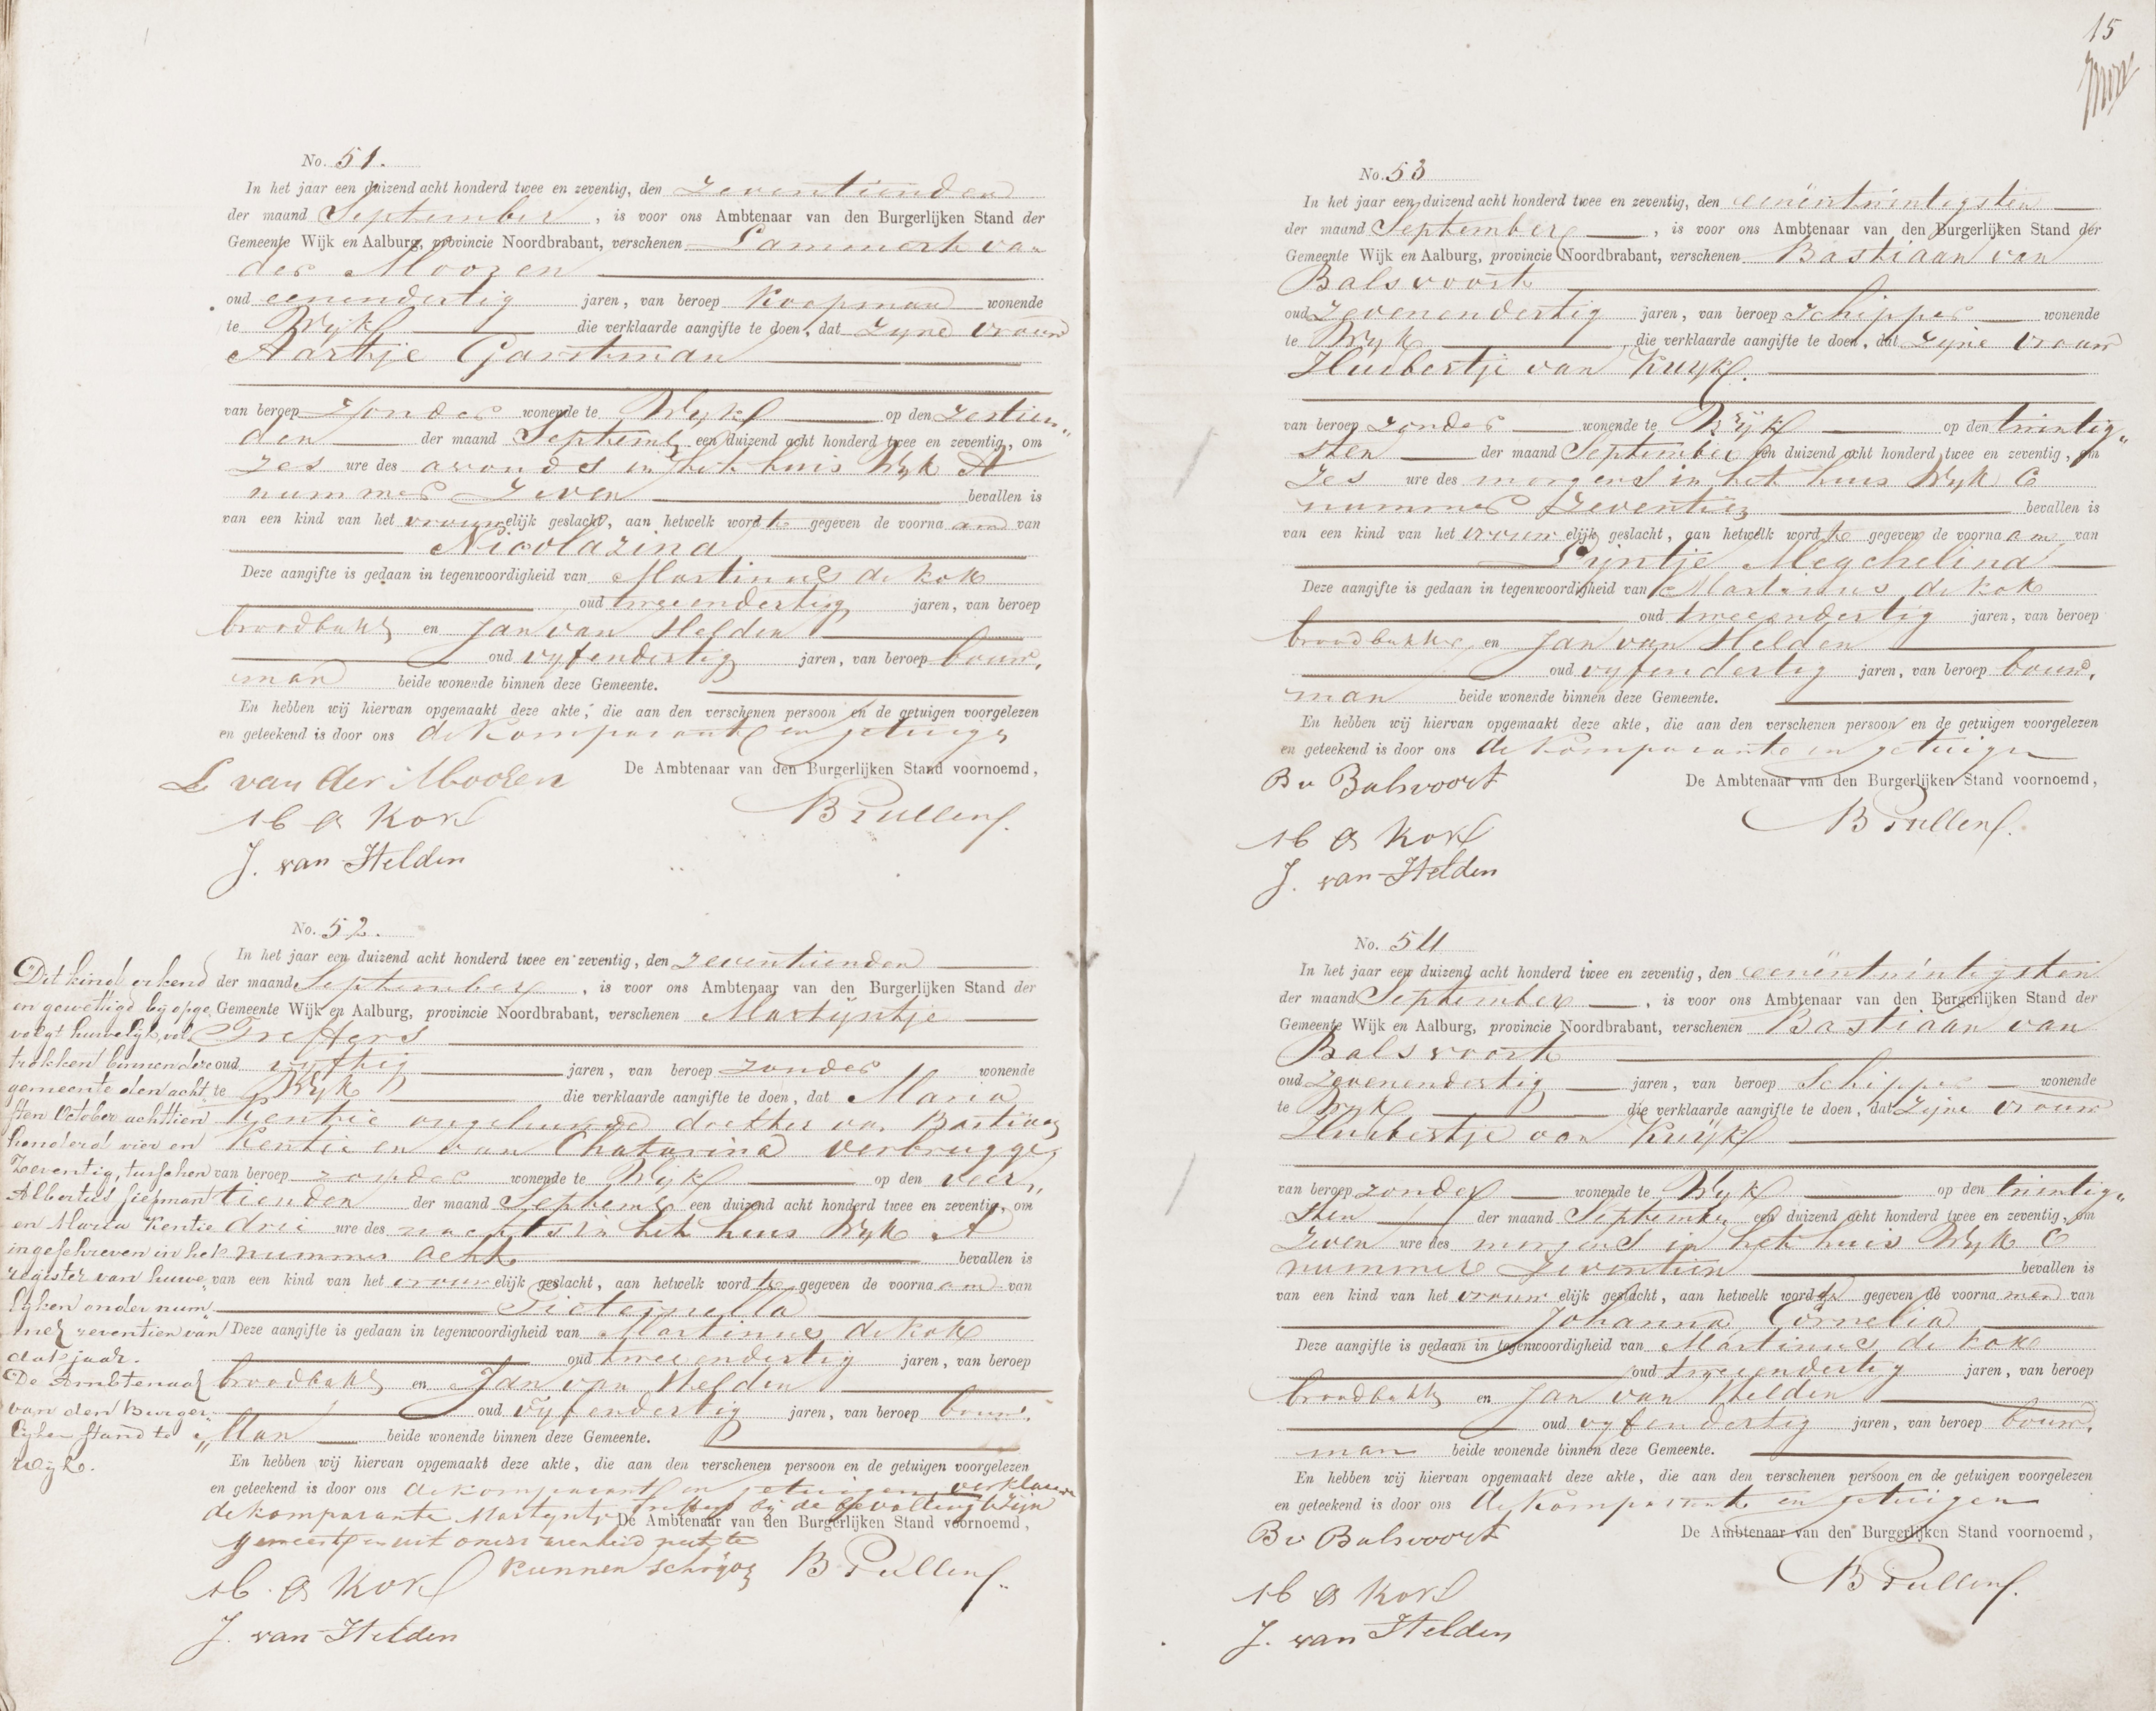 No. 51.
In het jaar een duizend acht honderd twee en zeventig, den zeventienden
der maand September, is voor ons Ambtenaar van den Burgerlijken Stand der
Gemeente Wijk en Aalburg, provincie Noordbrabant, verschenen Lammert van
der Moozen
oud eenendertig jaren, van beroep Koopman wonende
te Wijk die verklaarde aangifte te doen, dat zijne vrouw
Aartje Garstman
van beroep zonder wonende te Wijk op den zestien"
den der maand Septemb een duizend acht honderd twee en zeventig, om
zes ure des avonds in het huis Wijk A
nummer zeven bevallen is
van een kind van het vrouwelijk geslacht, aan hetwelk wordt gegeven de voornaam van
Nicolazina
Deze aangifte is gedaan in tegenwoordigheid van Martinus de Kok
oud tweeendertig jaren, van beroep
broodbakker en Jan van Helden
oud vijfendertig jaren, van beroep bouw,
man beide wonende binnen deze Gemeente.
En hebben wij hiervan opgemaakt deze akte, die aan den verschenen persoon en de getuigen voorgelezen
en geteekend is door ons de komparant en getuigen
De Ambtenaar van den Burgerlijken Stand voornoemd,
L van der Moozen
B Pullens.
M d Kok
J. van Helden
No. 52.
In het jaar een duizend acht honderd twee en zeventig, den zeventienden
der maand September, is voor ons Ambtenaar van den Burgerlijken Stand der
Gemeente Wijk en Aalburg, provincie Noordbrabant, verschenen Martijntje
Treffers
oud vyftig jaren, van beroep zonder wonende
te Wijk die verklaarde aangifte te doen, dat Maria
Kentie ongehuwde dochter van Bastiaan
Kentie en van Chatarina verbrugge,
van beroep zonder wonende te Wijk op den veer"
tienden der maand Septemb een duizend acht honderd twee en zeventig, om
drie ure des nachts in het huis Wijk A
nummer acht bevallen is
van een kind van het vrouwelijk geslacht, aan hetwelk wordt gegeven de voornaam van
Pieternella
Deze aangifte is gedaan in tegenwoordigheid van Martinus de Kok
oud tweeendertig jaren, van beroep
broodbakker en Jan van Helden
oud vijfendertig jaren, van beroep bouw,
"Man beide wonende binnen deze Gemeente.
En hebben wij hiervan opgemaakt deze akte, die aan den verschenen persoon en de getuigen voorgelezen
en geteekend is door ons de komparant en getuigen verklaar
de komparante Martijntje Treffers bij de bevalling te zijn
De Ambtenaar van den Burgerlijken Stand voornoemd,
geweest en uit onervarenheid niet te
kunnen schrijven
B Pullens.
M. d Kok
J. van Helden
Dit kind erkend
en gewettigd bij opge,
volgt huwelijk vol
trokken binnen deze
gemeente den acht
sten October achttien
honderd vier en
zeventig, tusschen
Albertus Siepman
en Maria Kentie
ingeschreven in het
register van huwe,
lijken onder num
mer zeventien van
dat jaar.
De Ambtenaar
van den Burger
lijken stand te
Wijk.
15
No. 53
In het jaar een duizend acht honderd twee en zeventig, den eenentwintigsten
der maand September, is voor ons Ambtenaar van den Burgerlijken Stand der
Gemeente Wijk en Aalburg, provincie Noordbrabant, verschenen Bastiaan van
Balsvoort
oud zevenendertig jaren, van beroep Schipper wonende
te Wijk die verklaarde aangifte te doen, dat zijne vrouw
Huibertje van Kuijk.
van beroep zonder wonende te Wijk op den twintig"
sten der maand September een duizend acht honderd twee en zeventig, om
zes ure des morgens in het huis Wijk C
nummer zeventien bevallen is
van een kind van het vrouwelijk geslacht, aan hetwelk wordt gegeven de voornaam van
Pijntje Megchelina
Deze aangifte is gedaan in tegenwoordigheid van Martinus de Kok
oud tweeendertig jaren, van beroep
broodbakker en Jan van Helden
oud vyfendertig jaren, van beroep bouw,
man beide wonende binnen deze Gemeente.
En hebben wij hiervan opgemaakt deze akte, die aan den verschenen persoon en de getuigen voorgelezen
en geteekend is door ons de komparante en getuigen
De Ambtenaar van den Burgerlijken Stand voornoemd,
B v Balsvoort
B Pullens.
M d Kok
J. van Helden
No. 54
In het jaar een duizend acht honderd twee en zeventig, den eenentwintigsten
der maand September, is voor ons Ambtenaar van den Burgerlijken Stand der
Gemeente Wijk en Aalburg, provincie Noordbrabant, verschenen Bastiaan van
Balsvoort
oud zevenendertig jaren, van beroep Schipper wonende
te Wijk die verklaarde aangifte te doen, dat zijne vrouw
Huibertje van Kuijk
van beroep zonder wonende te Wijk op den twintig"
sten der maand September een duizend acht honderd twee en zeventig, om
zeven ure des morgens in het huis Wijk C
nummer zeventien bevallen is
van een kind van het vrouwelijk geslacht, aan hetwelk worden gegeven de voornamen van
Johanna Cornelia
Deze aangifte is gedaan in tegenwoordigheid van Martinus de Kok
oud tweeendertig jaren, van beroep
broodbakker en Jan van Helden
oud vyfendertig jaren, van beroep bouw,
man beide wonende binnen deze Gemeente.
En hebben wij hiervan opgemaakt deze akte, die aan den verschenen persoon en de getuigen voorgelezen
en geteekend is door ons de komparante en getuigen
De Ambtenaar van den Burgerlijken Stand voornoemd,
B v Balsvoort
B Pullens.
M d Kok
J. van Helden